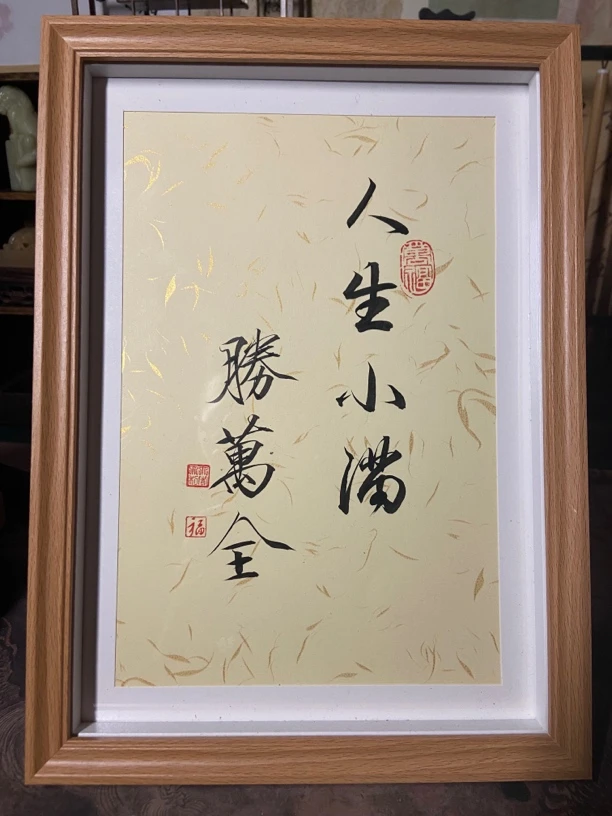 人生小满
勝萬全
福